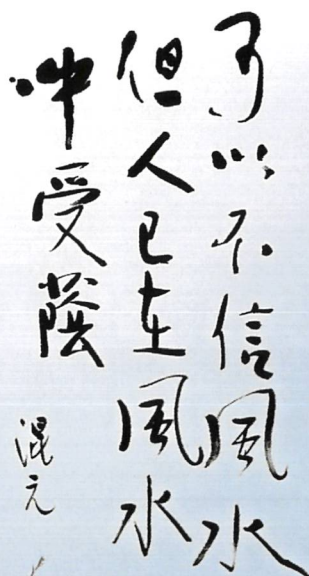 可以不信風水
但人已在風水
中受蔭
混元